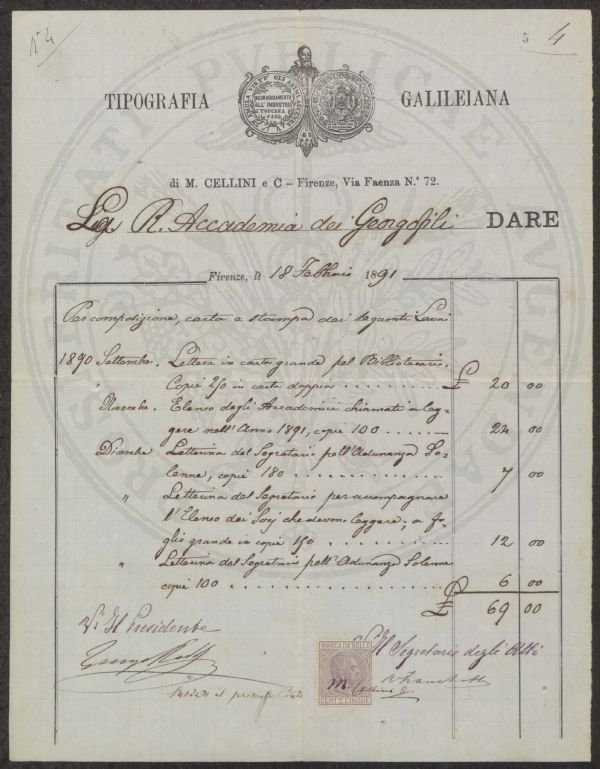 N° 4
5 4
TIPOGRAFIA GALILEIANA
INCORAGGIAMENTO
ALL' INDUSTRIA
TOSCANA
1854
di M. CELLINI e C - Firenze, Via Faenza N.° 72.
R. Accademia dei Georgofili DARE
Firenze, li 18 Febbraio 1891
Per composizione, carta e stampa dei seguenti Lavori
1890 Settembre. Lettera in carta grande pel Bibliotecario.
Copie 250 in carta doppia . . . . . . . . £ 20 00
Novembe. Elenco degli Accademici chiamati a leg-
gere nell'Anno 1891, copie 100 . . . . . . 24 00
Dicembre Letterina del Segretario pell'Adunanza So-
lenne, copie 180 . . . . . . . . . . . . 7 00
" Letterina del Segretario per accompagnare
l'Elenco dei Socj che devono leggere; a fo-
glio grande in copie 150 . . . . . . . . 12 00
" Letterina del Segretario pell'Adunanza Solenne
copie 100 . . . . . . . . . . . . . . . 6 00
£ 69 00
V.° Il Presidente
V.° Il Segretario degli Atti
MARCA DA BOLLO
M. Cellini
CENT.MI CINQUE